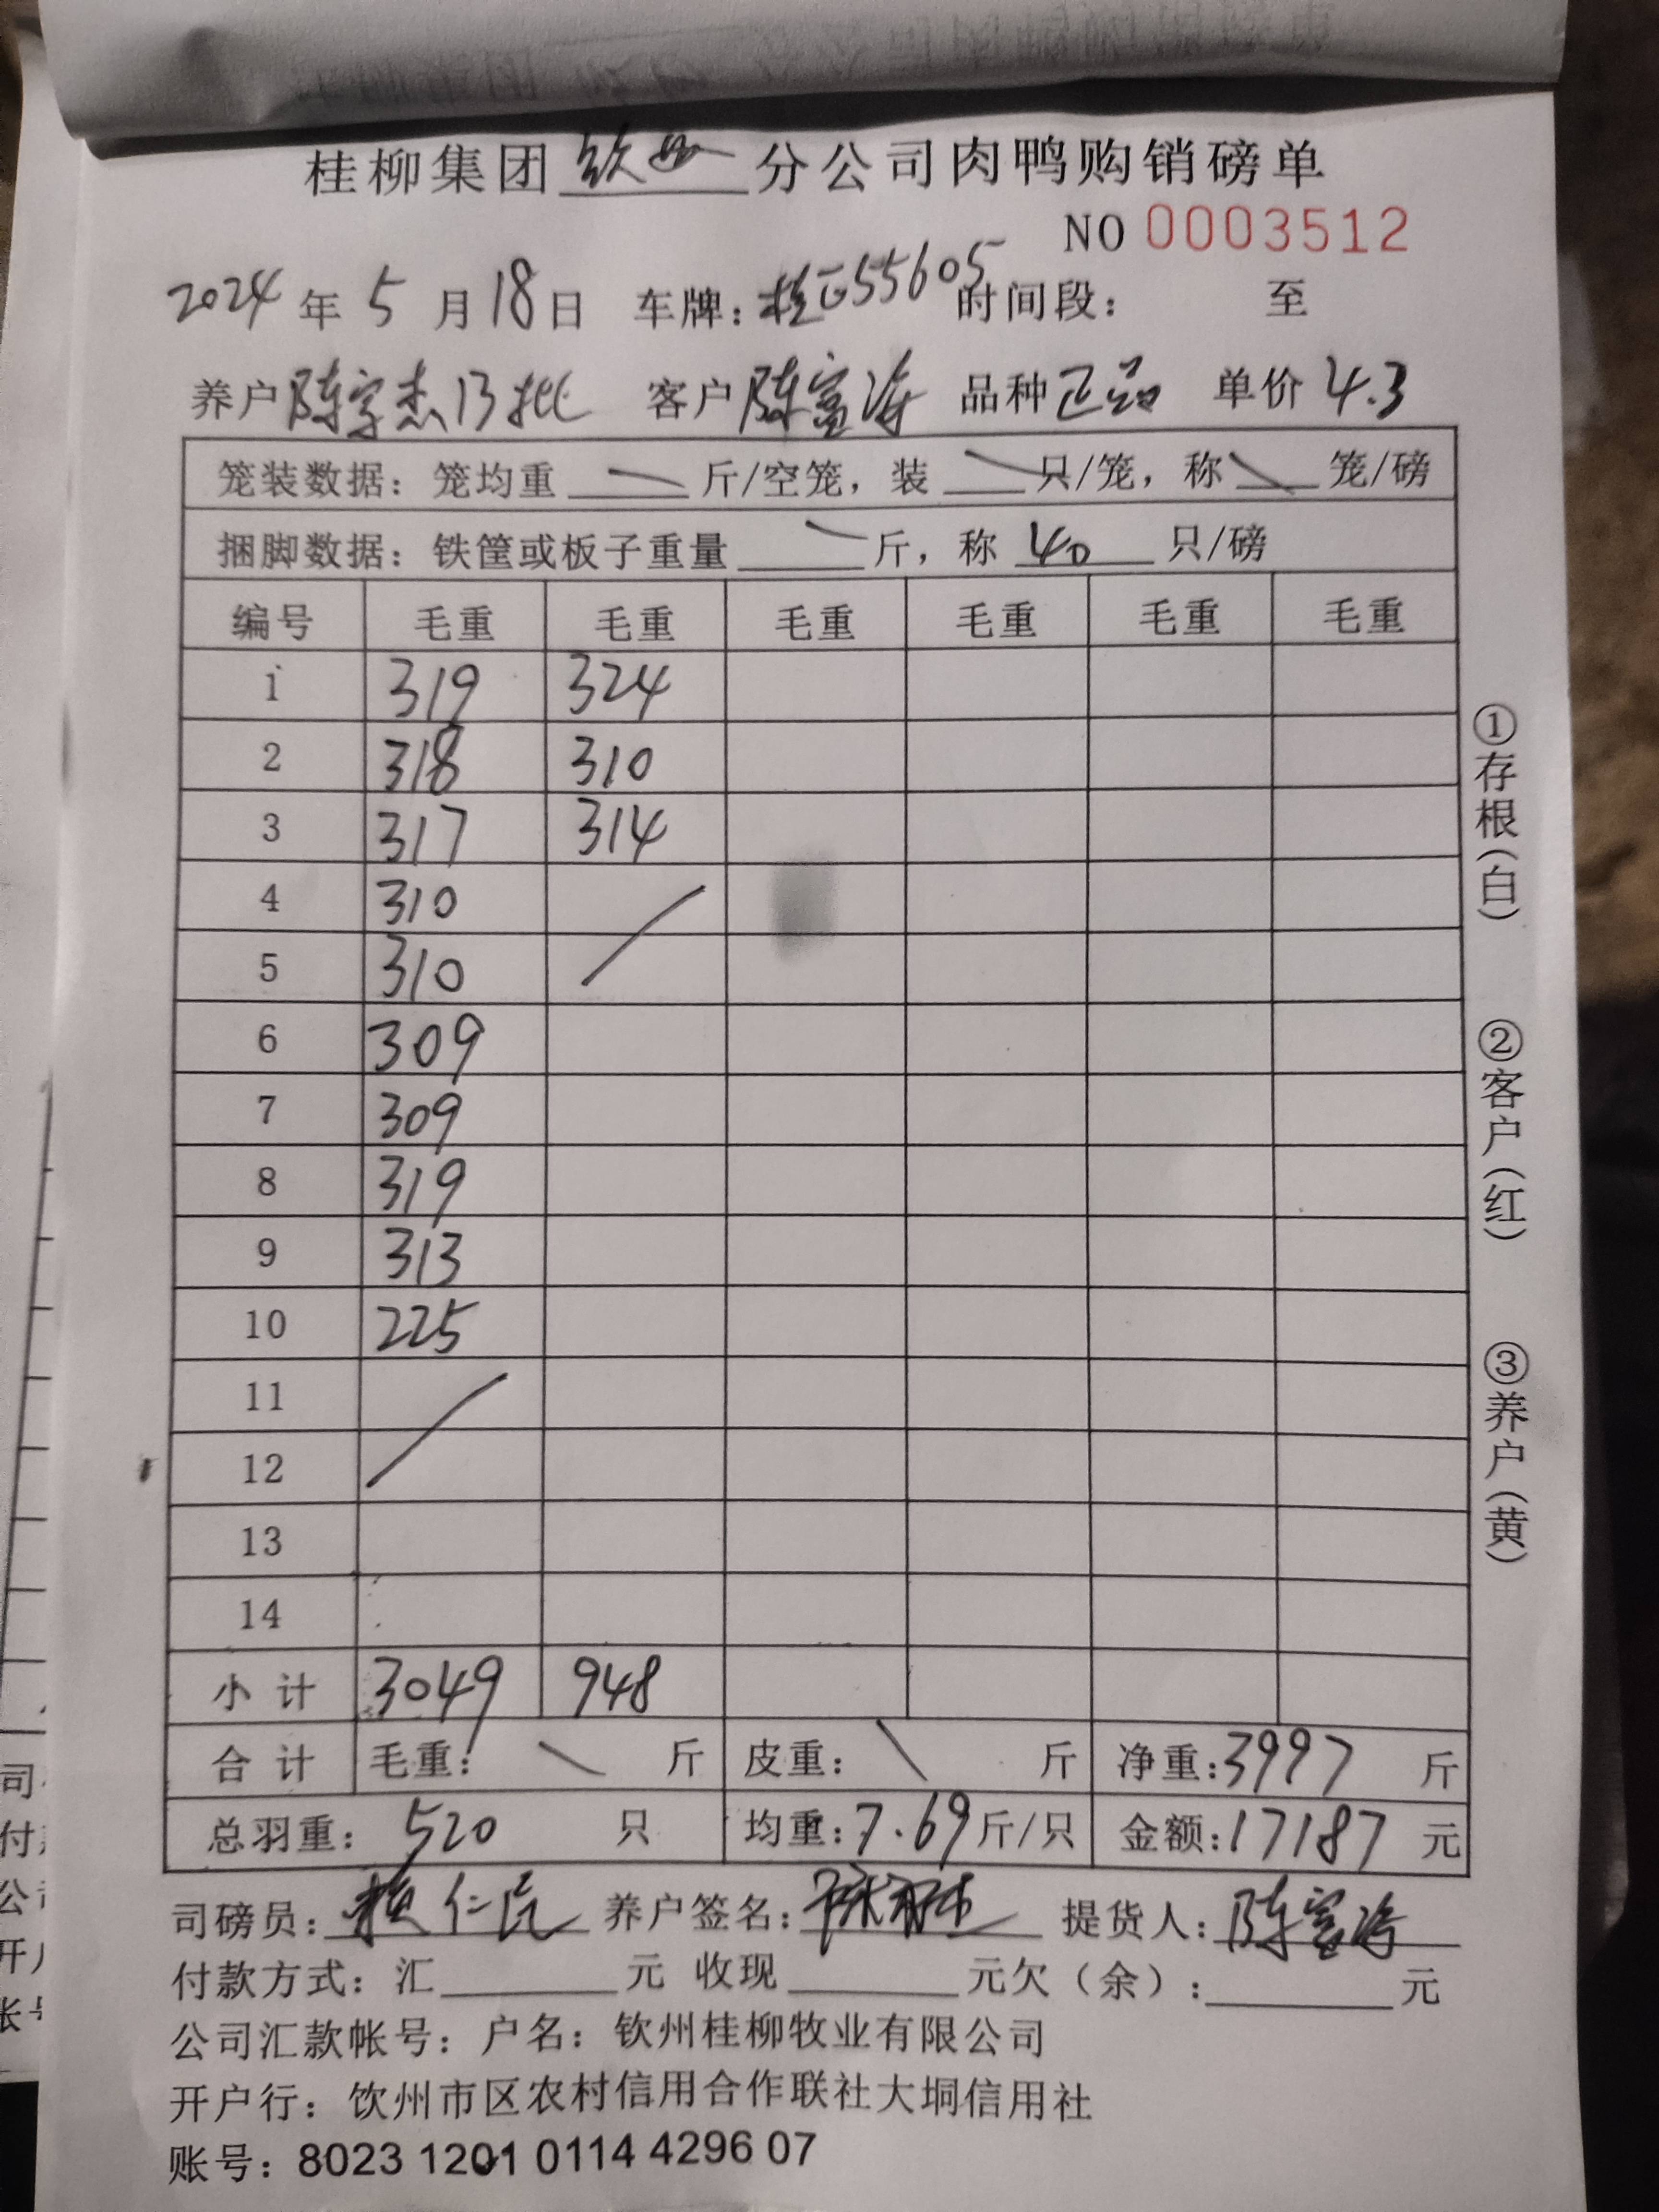 桂柳集团 分公司肉鸭购销磅单
NO 0003512
2024 年 5 月 18 日 车牌: 桂 55605 时间段: 至
养户 陈字杰13批 客户 陈富海 品种 正品 单价 4.3
笼装数据: 笼均重 斤/空笼, 装 只/笼, 称 笼/磅
捆脚数据: 铁筐或板子重量 斤, 称 40 只/磅
编号 毛重 毛重 毛重 毛重 毛重 毛重
1 319 324
2 318 310
3 317 314
4 310
5 310
6 309
7 309
8 319
9 313
10 225
11
12
13
14
小计 3049 948
合计 毛重: 斤 皮重: 斤 净重: 3997 斤
总羽重: 520 只 均重: 7.69 斤/只 金额: 17187 元
司磅员: 仁 养户签名: 陈 提货人: 陈富海
付款方式: 汇 元 收现 元欠(余): 元
公司汇款帐号: 户名: 钦州桂柳牧业有限公司
开户行: 饮州市区农村信用合作联社大垌信用社
账号: 8023 1201 0114 4296 07
①存根(白)
②客户(红)
③养户(黄)